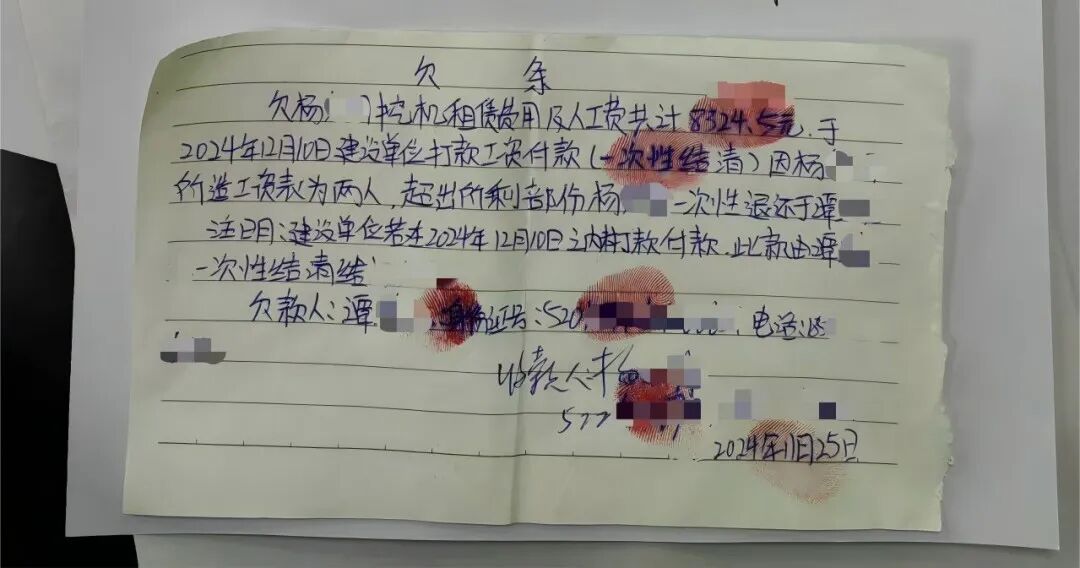 欠 条
欠杨 挖机租赁费用及人工费共计8324.5元,于
2024年12月10日建设单位打款工资付款(一次性结清)因杨
所造工资表为两人,超出所剩部份杨 一次性退还于谭
注明:建设单位若在2024年12月10日之内打款付款,此款由谭
一次性结清结
欠款人:谭 身份证号:520 电话:18
收款人:杨
522
2024年11月25日